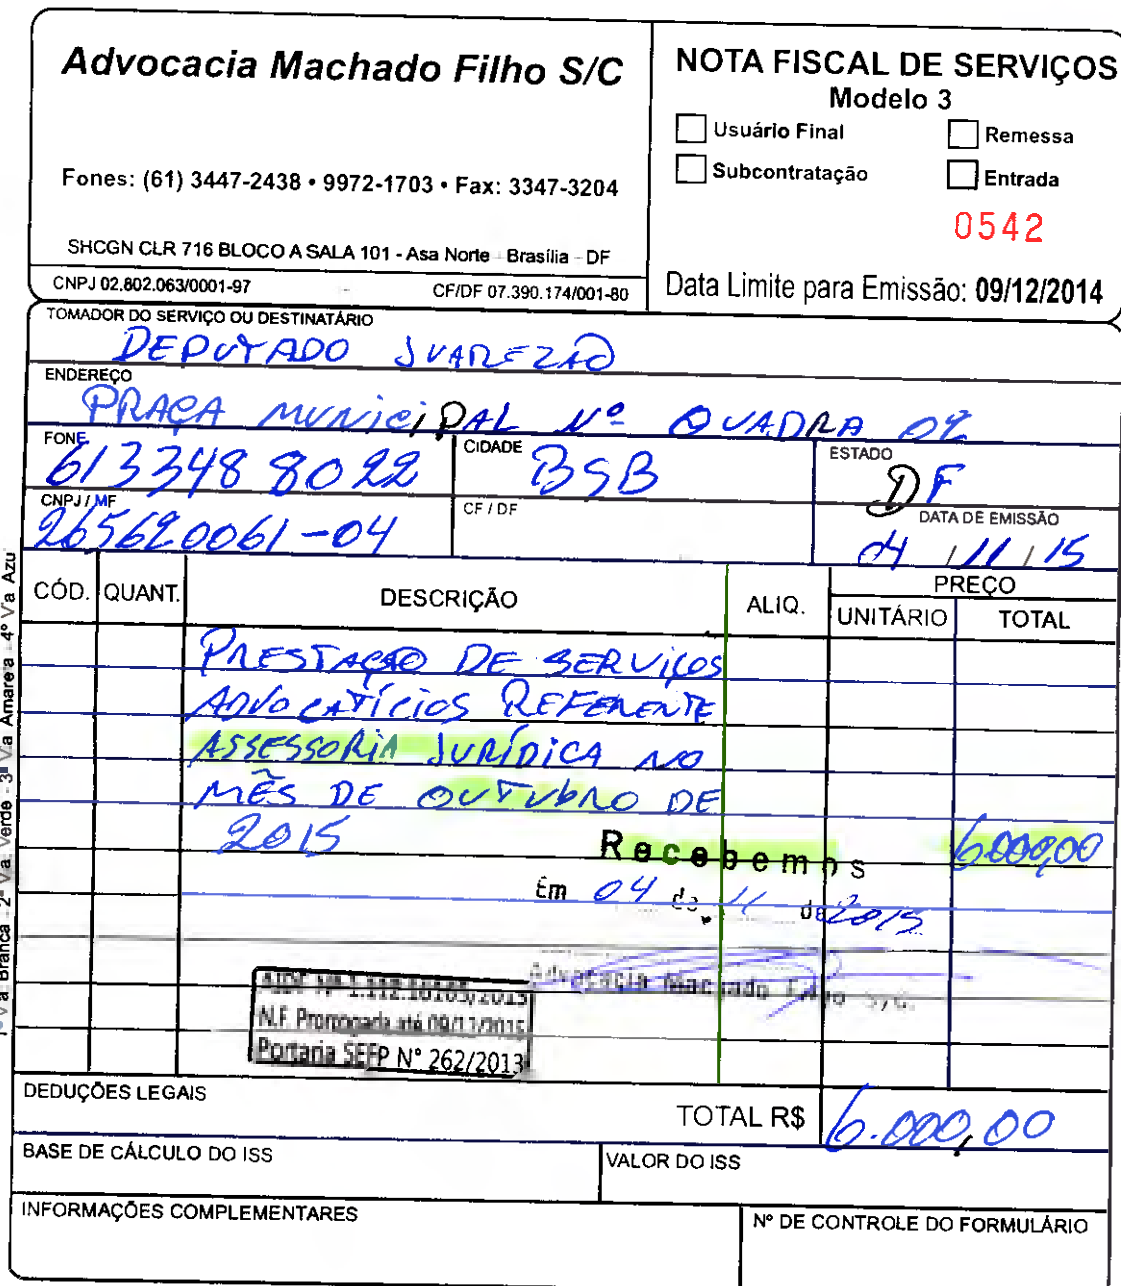 Advocacia Machado Filho S/C
Fones: (61) 3447-2438 • 9972-1703 • Fax: 3347-3204
SHCGN CLR 716 BLOCO A SALA 101 - Asa Norte - Brasília - DF
CNPJ 02.802.063/0001-97 CF/DF 07.390.174/001-80
NOTA FISCAL DE SERVIÇOS
Modelo 3
Usuário Final Remessa
Subcontratação Entrada
0542
Data Limite para Emissão: 09/12/2014
TOMADOR DO SERVIÇO OU DESTINATÁRIO
DEPUTADO JUAREZÃO
ENDEREÇO
PRAÇA MUNICIPAL Nº QUADRA 02
FONE CIDADE ESTADO
61 3348 8022 BSB DF
CNPJ / MF CF / DF DATA DE EMISSÃO
265620061-04 04 / 11 / 15
CÓD. QUANT. DESCRIÇÃO ALIQ. PREÇO
UNITÁRIO TOTAL
PRESTAÇÃO DE SERVIÇOS
ADVOCATÍCIOS REFERENTE
ASSESSORIA JURÍDICA NO
MÊS DE OUTUBRO DE
2015 6.000,00
Recebemos
Em 04 de 11 de 2015
Advocacia Machado Filho S/C.
N.F. Prorrogada até 09/12/2015
Portaria SEFP N° 262/2013
DEDUÇÕES LEGAIS
TOTAL R$ 6.000,00
BASE DE CÁLCULO DO ISS VALOR DO ISS
INFORMAÇÕES COMPLEMENTARES Nº DE CONTROLE DO FORMULÁRIO
1ª Via Branca - 2ª Via Verde - 3ª Via Amarela - 4ª Via Azul